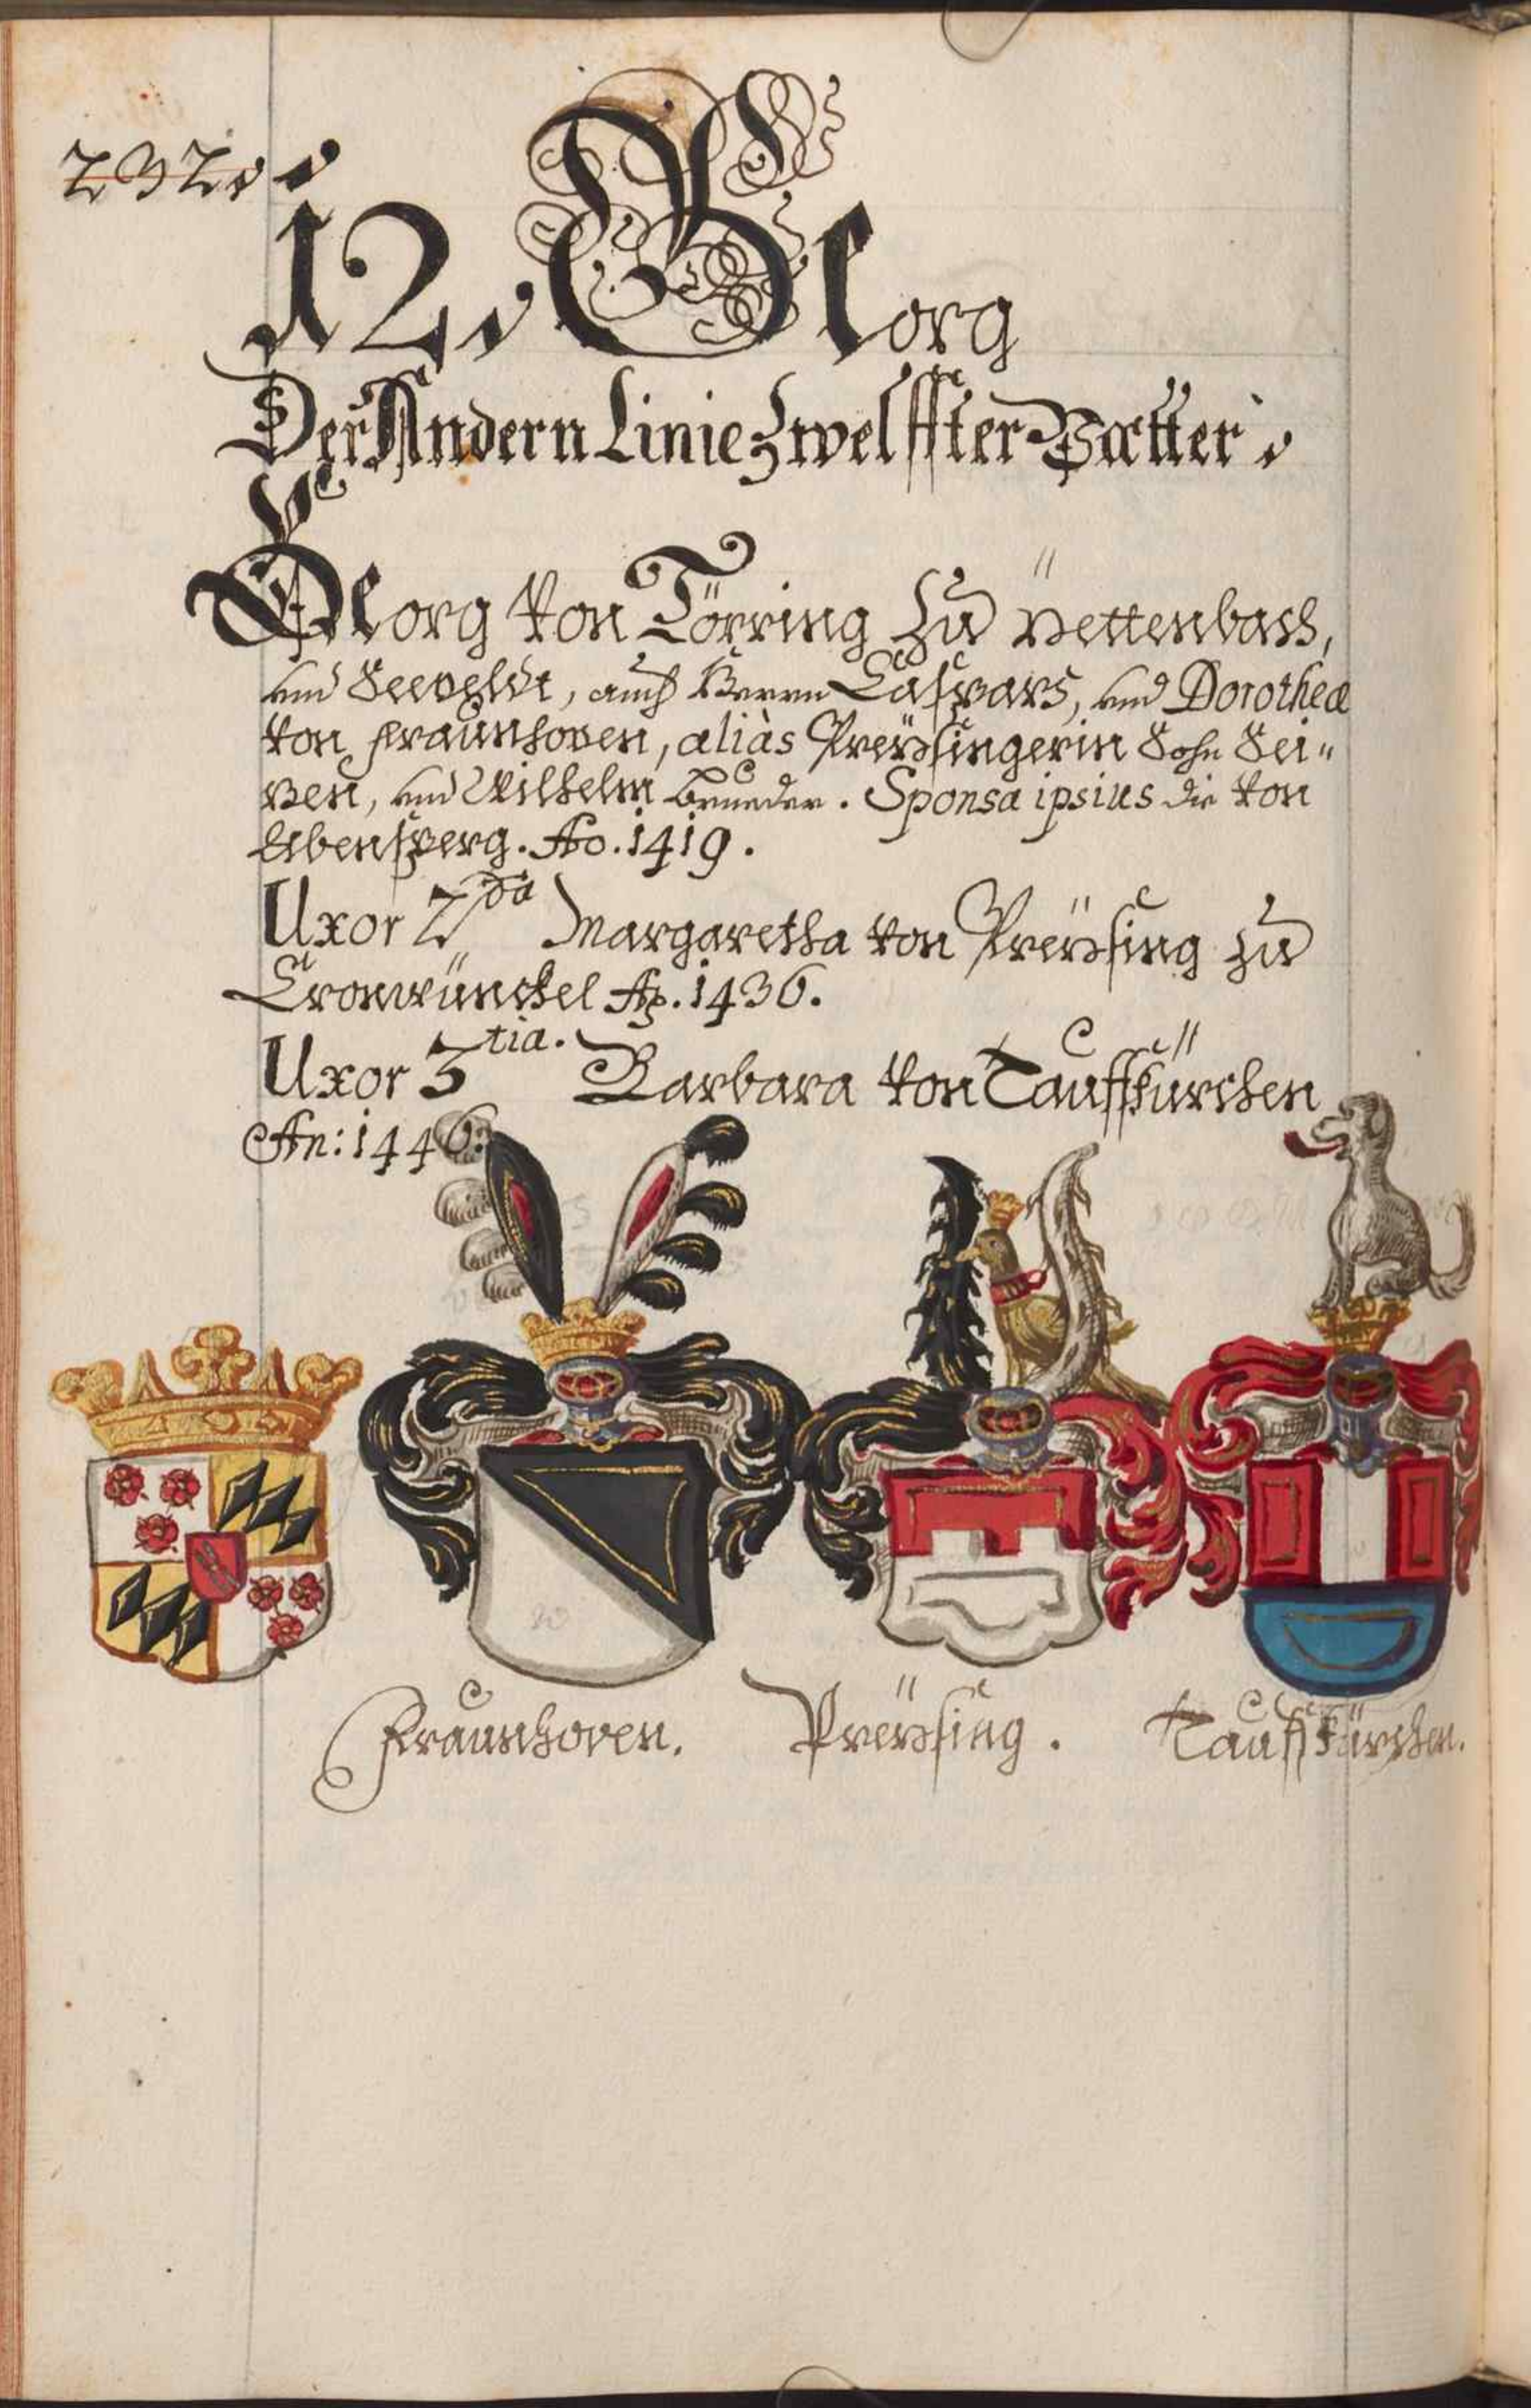 232.
12. Georg
Der Andern Linie Zwelffter Vatter.
Georg von Törring zu Pettenbach,
und Seeveldt, auch Herrn Caspars, und Dorothea
von Fraunhoven, aliàs Preÿsingerin Sohn Sei=
zen, und Wilhelm brueder. Sponsa ipsius die von
Abensperg. Ao. 1419.
Uxor 2da Margaretha von Preÿsing zu
Cronwünckel Ao. 1436.
Uxor 3tia. Barbara von Tauffkürchen
An: 1446.
Fraunhoven. Preÿsing. Tauffkürchen.